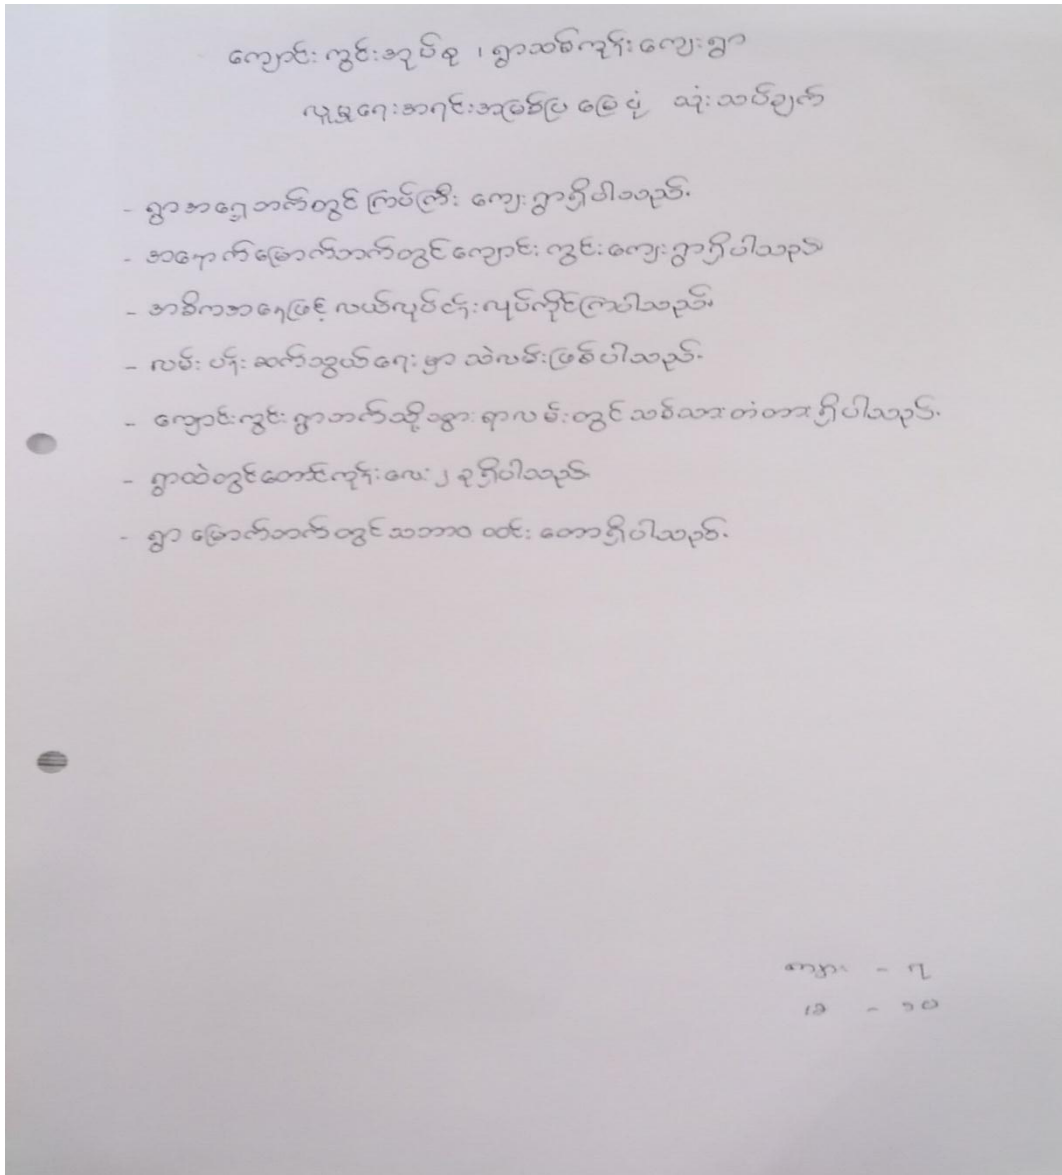 ကျောင်းကွင်းအုပ်စု ၊ ရွာသစ်ကုန်းကျေးရွာ
လူမှုရေးအရင်းအမြစ်ပြ မြေပုံ သုံးသပ်ချက်
- ရွာအရှေ့ဘက်တွင် ကြပ်ကြီး ကျေးရွာရှိပါသည်.
- အနောက်မြောက်ဘက်တွင်ကျောင်းကွင်းကျေးရွာရှိပါသည်
- အဓိကအနေဖြင့် လယ်လုပ်ငန်းလုပ်ကိုင်ကြပါသည်.
- လမ်းပန်းဆက်သွယ်ရေးမှာ သဲလမ်းဖြစ်ပါသည်.
- ကျောင်းကွင်းရွာဘက်သို့သွားရာလမ်းတွင်သစ်သားတံတားရှိပါသည်.
- ရွာထဲတွင်တောင်ကုန်းလေး ၂ ခုရှိပါသည်
- ရွာမြောက်ဘက်တွင်သဘာဝ ထင်းတောရှိပါသည်.
ကျား - ၇
မ - ၁၀